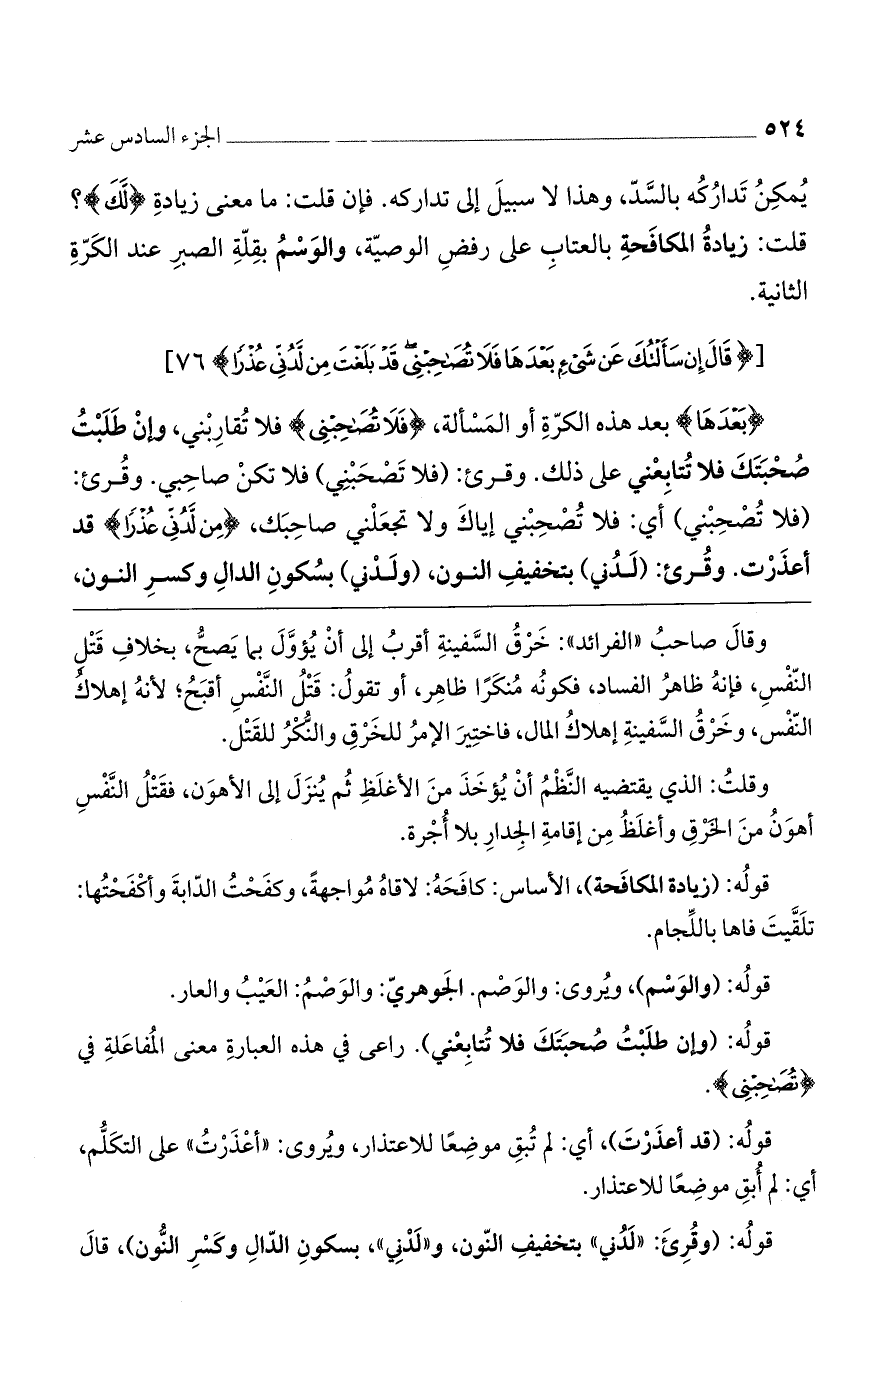 ٥٢٤ الجزء السادس عشر
يُمكِنُ تَدارُكُه بالسَّدّ، وهذا لا سبيلَ إلى تداركه. فإن قلت: ما معنى زيادةِ ﴿لَّكَ﴾؟
قلت: زيادةُ المكافَحةِ بالعتابِ على رفضِ الوصيّة، والوَسْمُ بقِلّةِ الصبرِ عند الكَرّةِ
الثانية.
[﴿قَالَ إِن سَأَلْتُكَ عَن شَىْءٍ بَعْدَهَا فَلَا تُصَٰحِبْنِى ۖ قَدْ بَلَغْتَ مِن لَّدُنِّى عُذْرًا﴾ ٧٦]
﴿بَعْدَهَا﴾ بعد هذه الكرّةِ أو المَسْألة، ﴿فَلَا تُصَٰحِبْنِى﴾ فلا تُقاربْني، وإنْ طَلَبْتُ
صُحْبَتَكَ فلا تُتابِعْني على ذلك. وقـرئ: (فلا تَصْحَبْنِي) فلا تكنْ صاحِبي. وقُـرئ:
(فلا تُصْحِبْني) أي: فلا تُصْحِبْني إياكَ ولا تجعَلْني صاحِبَك، ﴿مِن لَّدُنِّى عُذْرًا﴾ قد
أعذَرْت. وقُـرئ: (لَـدُني) بتخفيفِ النـون، (ولَـدْني) بسُكونِ الدالِ وكسـرِ النـون،
وقالَ صاحبُ «الفرائد»: خَرْقُ السَّفينةِ أقربُ إلى أنْ يُؤوَّلَ بما يَصحُّ، بخلافِ قَتْلِ
النَّفْسِ، فإنهُ ظاهرُ الفساد، فكونُه مُنكَرًا ظاهِر، أو تقولُ: قَتْلُ النَّفْسِ أقبَحُ؛ لأنهُ إهلاكُ
النَّفْس، وخَرْقُ السَّفينةِ إهلاكُ المال، فاختِيرَ الإمرُ للخَرْقِ والنُّكْرُ للقَتْل.
وقلتُ: الذي يقتضيه النَّظْمُ أنْ يُؤخَذَ منَ الأغلَظِ ثُم يُنزَلَ إلى الأهوَن، فقَتْلُ النَّفْسِ
أهوَنُ منَ الخَرْقِ وأغلَظُ مِن إقامةِ الجِدارِ بلا أُجْرة.
قولُه: (زيادة المكافَحة)، الأساس: كافَحَهُ: لاقاهُ مُواجهةً، وكفَحْتُ الدّابةَ وأكْفَحْتُها:
تلَقَّيتَ فاها باللِّجام.
قولُه: (والوَسْم)، ويُروى: والوَصْم. الجَوهريّ: والوَصْمُ: العَيْبُ والعار.
قولُه: (وإن طلَبْتُ صُحبَتَكَ فلا تُتابِعْني). راعى في هذه العبارةِ معنى المُفاعَلةِ في
﴿تُصَٰحِبْنِى﴾.
قولُه: (قد أعذَرْتَ)، أي: لم تُبقِ موضِعًا للاعتذار، ويُروى: «أعْذَرْتُ» على التكلُّم،
أي: لم أُبقِ موضِعًا للاعتذار.
قولُه: (وقُرِئَ: «لَدُني» بتخفيفِ النّون، و«لَدْنِي»، بسكونِ الدّالِ وكَسْرِ النُّون)، قالَ